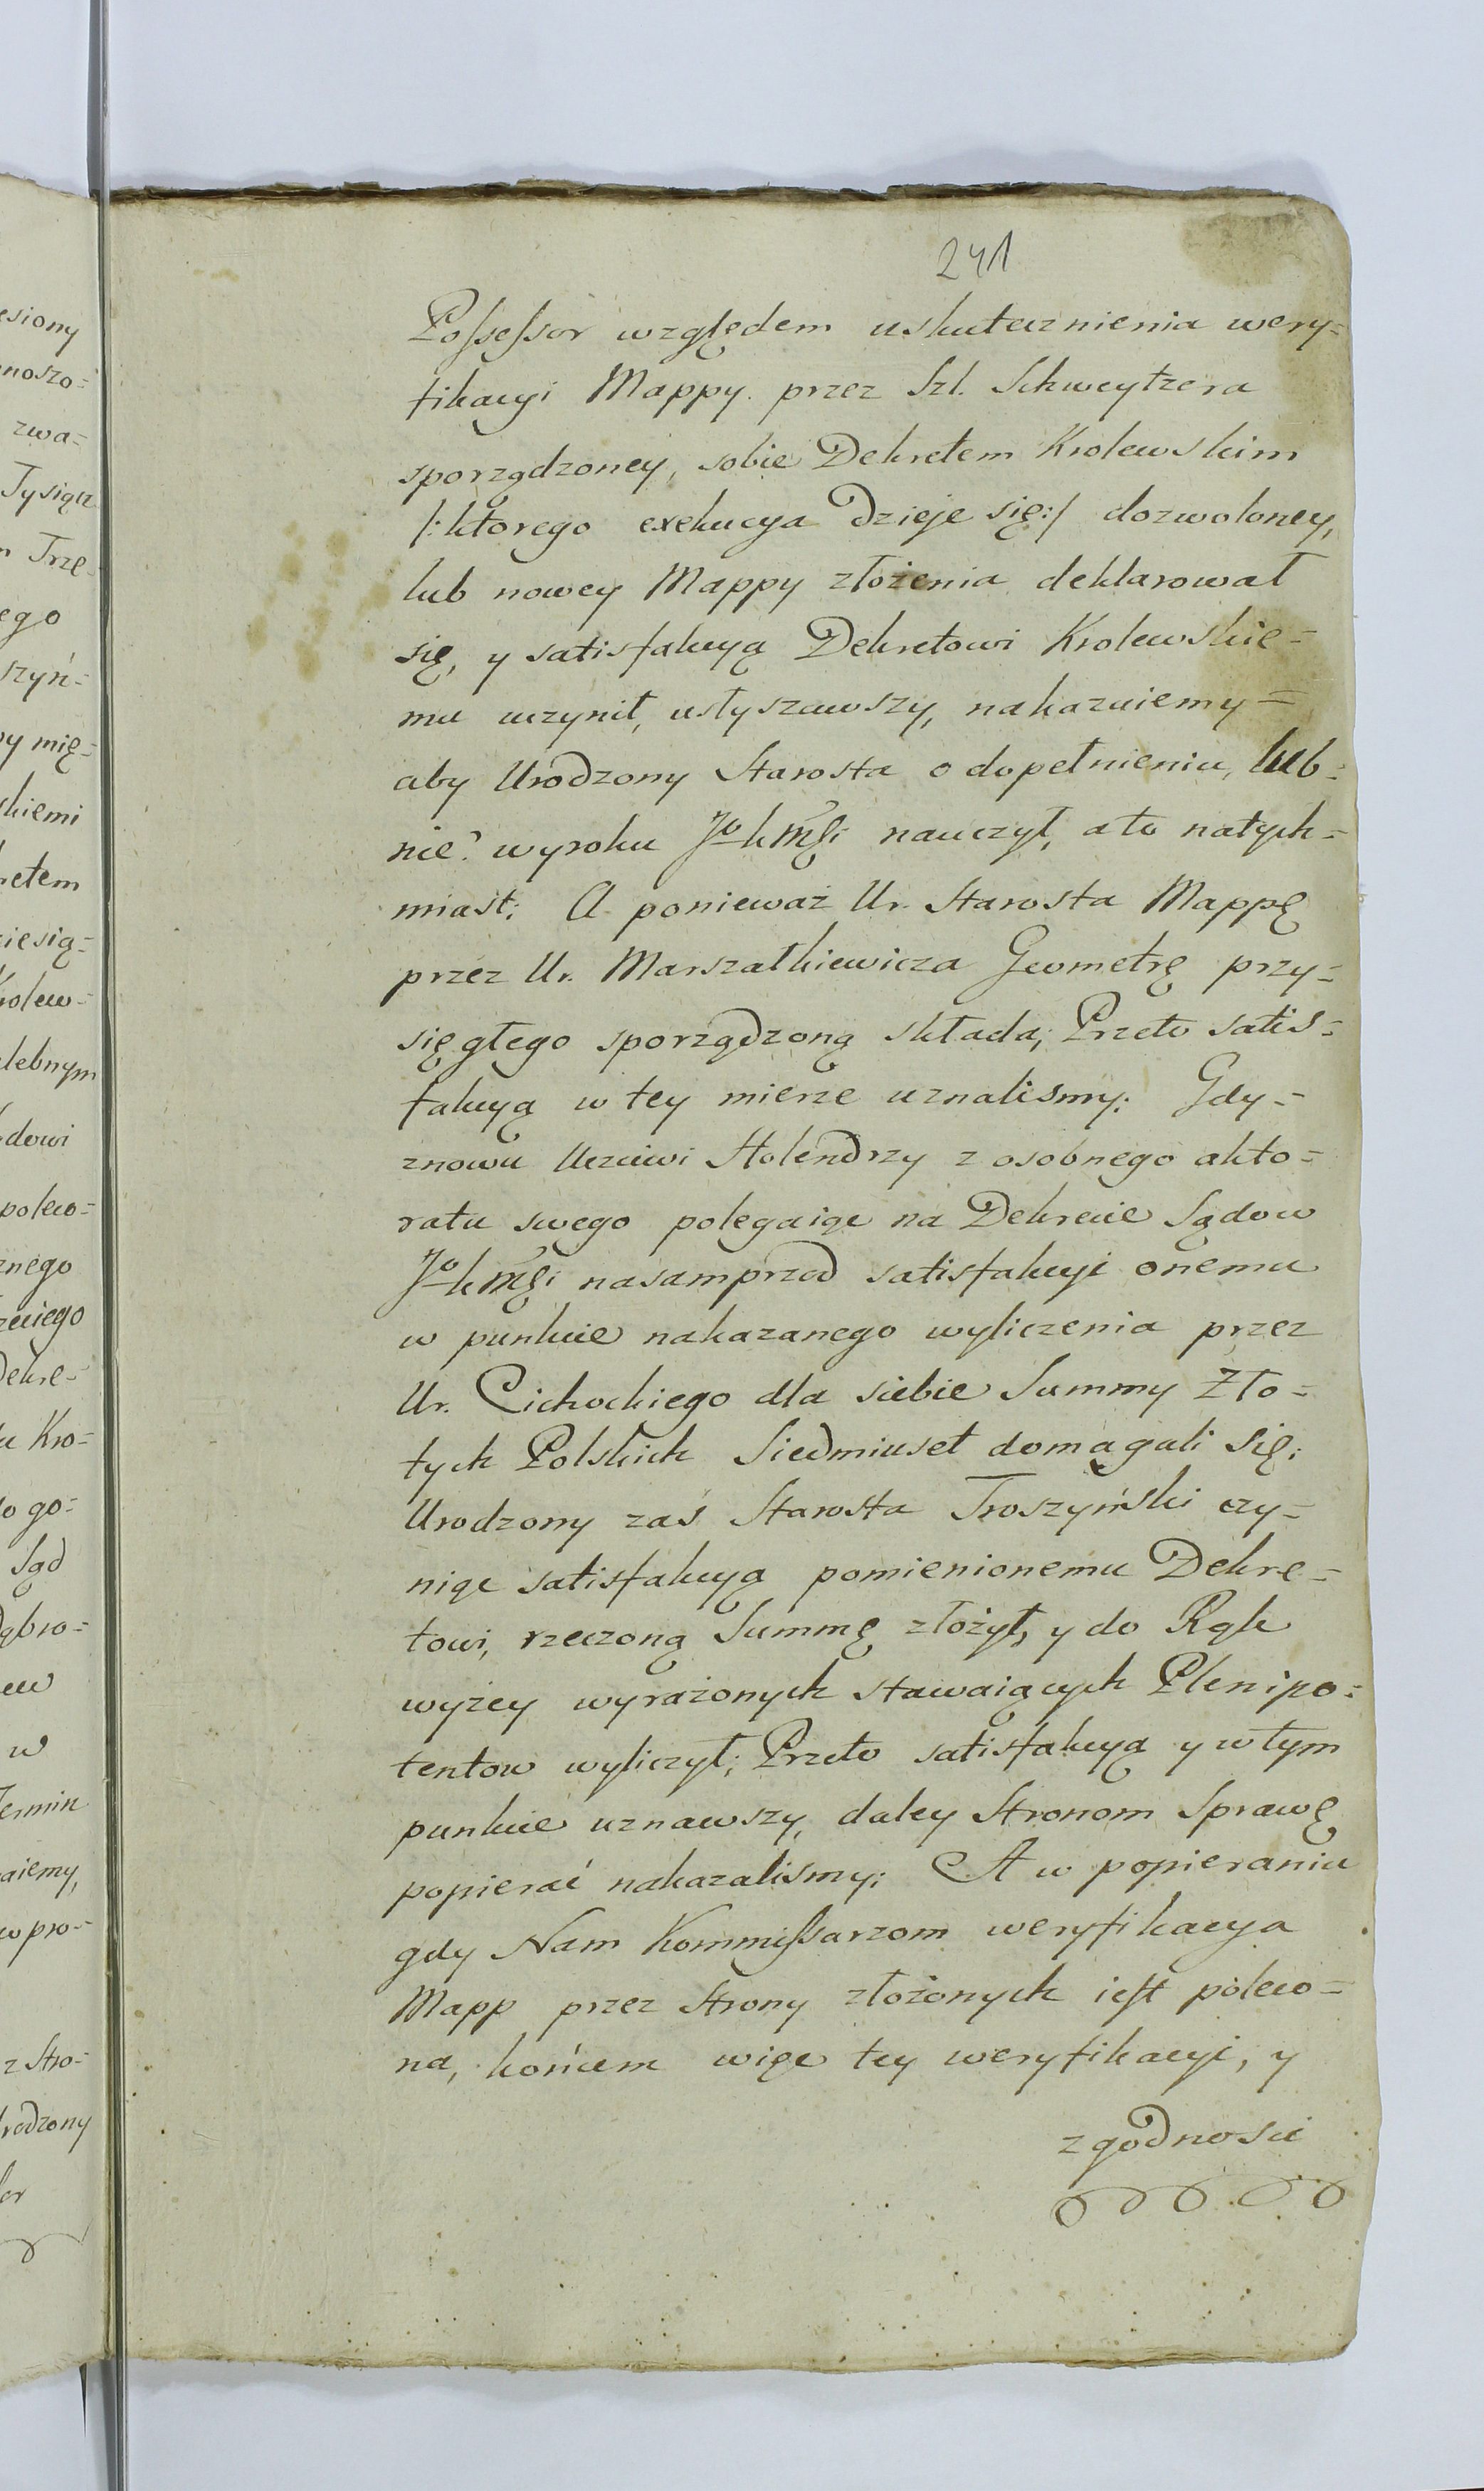 241
Possessor względem uskutecznienia wery=
fikacyi Mappy przez Szl. Schweytzera
sporządzoney, sobie Dekretem Krolewskim
/:ktorego exekucya dzieje się:/ dozwoloney,
lub nowey Mappy złożenia deklarował
się, y satisfakcyą Dekretowi Krolewskie=
mu uczynił, usłyszawszy, nakazuiemy=
aby Urodzony Starosta o dopełnieniu, lub=
nie? wyroku JoKMći nauczył, a to natych=
miast; A ponieważ Ur. Starosta Mappę
przez Ur. Marszałkiewicza Geometrę przy=
sięgłego sporządzoną składa; Przeto satis=
fakcyą w tey mierze uznalismy: Gdy=
znowu Uczciwi Holendrzy z osobnego akto=
ratu swego polegaiąc na Dekrecie Sądow
JoKMći nasamprzod satisfakcyi onemu
w punkcie nakazanego wyliczenia przez
Ur. Cichockiego dla siebie Summy Zło=
tych Polskich Siedmiuset domagali się;
Urodzony zaś Starosta Troszyński czy=
niąc satisfakcyą pomienionemu Dekre=
towi, rzeczoną Summę złożył, y do Rąk
wyżey wyrażonych stawaiących Plenipo=
tentow wyliczył; Przeto satisfakcyą y w tym
punkcie uznawszy, daley Stronom Sprawę
popierać nakazalismy; A w popieraniu
gdy Nam Kommissarzom weryfikacya
Mapp przez Strony złożonych iest poleco=
na, końcem więc tey weryfikacyi, y
zgodnosci
esiony
noszo=
zwa=
Tysiąc
Trze
ego
szyń=
y mię=
skiemi
retem
iesią=
Krolew=
lebnym
dowi
poleco=
znego
Dekre=
Kro=
go=
Sąd
ąbro=
w
Termin
aiemy,
w pro=
z Stro=
rodzony